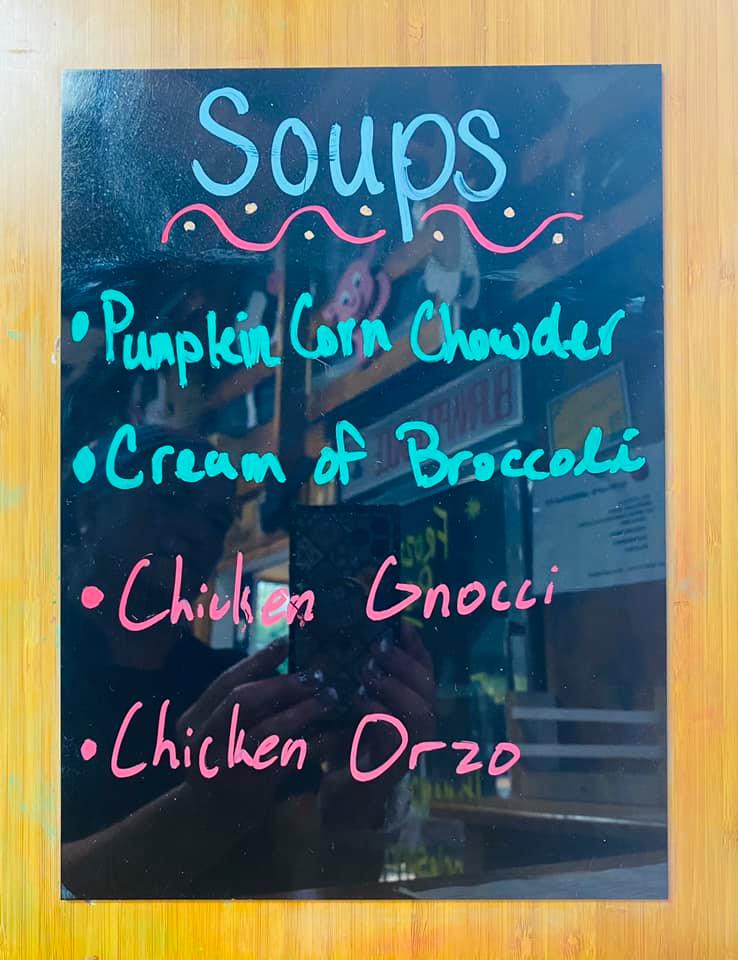 Soups
• Pumpkin Corn Chowder
• Cream of Broccoli
• Chicken Gnocci
• Chicken Orzo